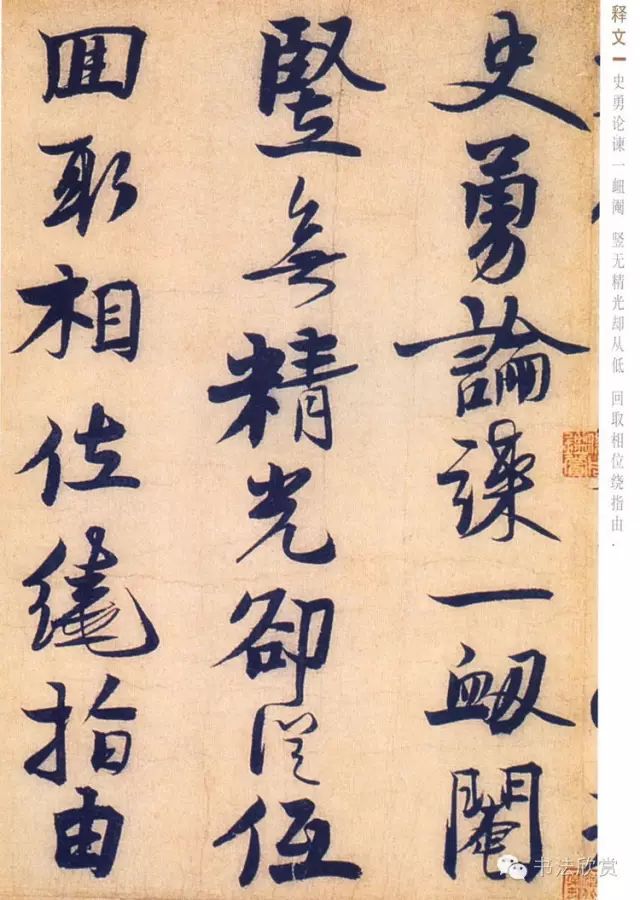 释文 史勇论谏一衄阉 竖无精光却从低 回取相位绕指由.
史勇論諫一衄閹
竪無精光卻從低
囬取相位繞指由
书法欣赏